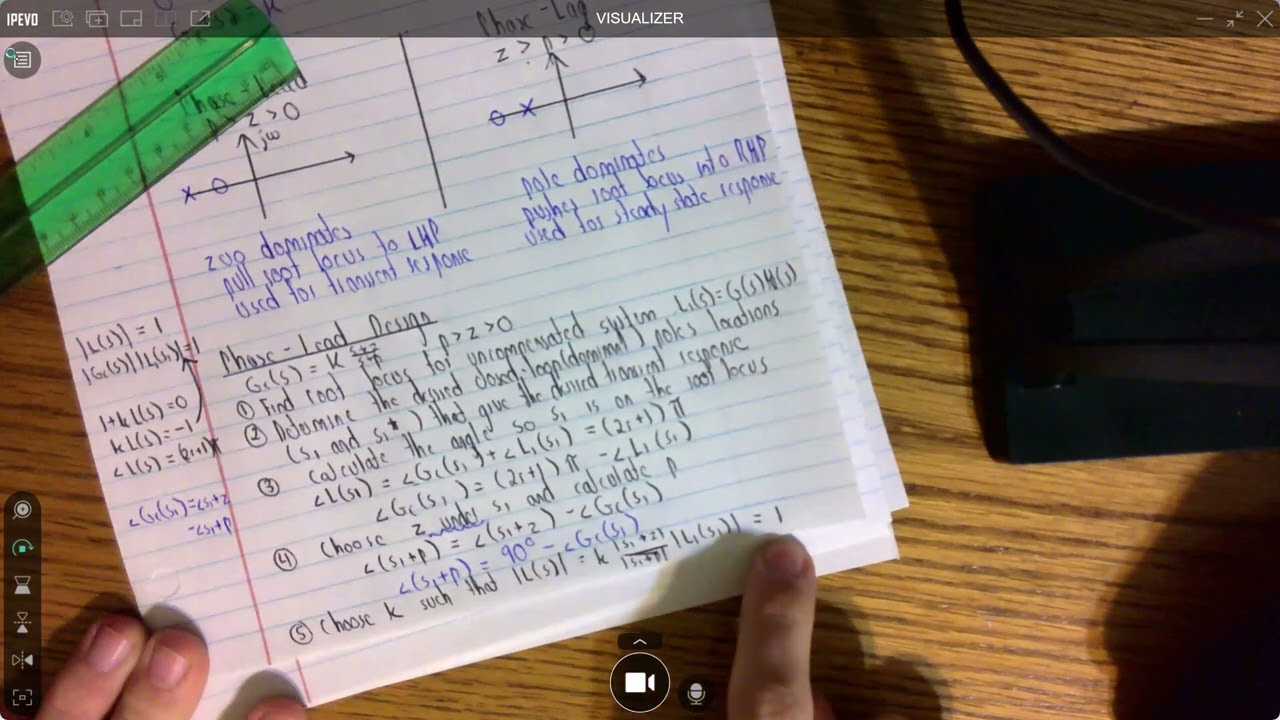 IPEVO
VISUALIZER
Phase-Lead
p > z > 0
jω
zero dominates
pull root locus to LHP
used for transient response
Phase-Lag
z > p > 0
pole dominates
pushes root locus into RHP
used for steady state response
Phase-Lead Design
Gc(s) = K (s+z)/(s+p) p > z > 0
① Find root locus for uncompensated system L(s)=G(s)H(s)
② Determine the desired closed-loop (dominant) poles locations
(s₁ and s₁*) that give the desired transient response
③ calculate the angle so s₁ is on the root locus
∠L(s₁) = ∠Gc(s₁) + ∠L₁(s₁) = (2r+1)π
∠Gc(s₁) = (2r+1)π - ∠L₁(s₁)
④ Choose z under s₁ and calculate p
∠(s₁+p) = ∠(s₁+z) - ∠Gc(s₁)
∠(s₁+p) = 90° - ∠Gc(s₁)
⑤ Choose K such that |L(s)| = K |s₁+z|/|s₁+p| |L₁(s₁)| = 1
|L(s)| = 1
|Gc(s)||L(s)|=1
1+kL(s)=0
kL(s)=-1
∠L(s)=(2r+1)π
∠Gc(s₁)=∠s₁+z
-∠s₁+p